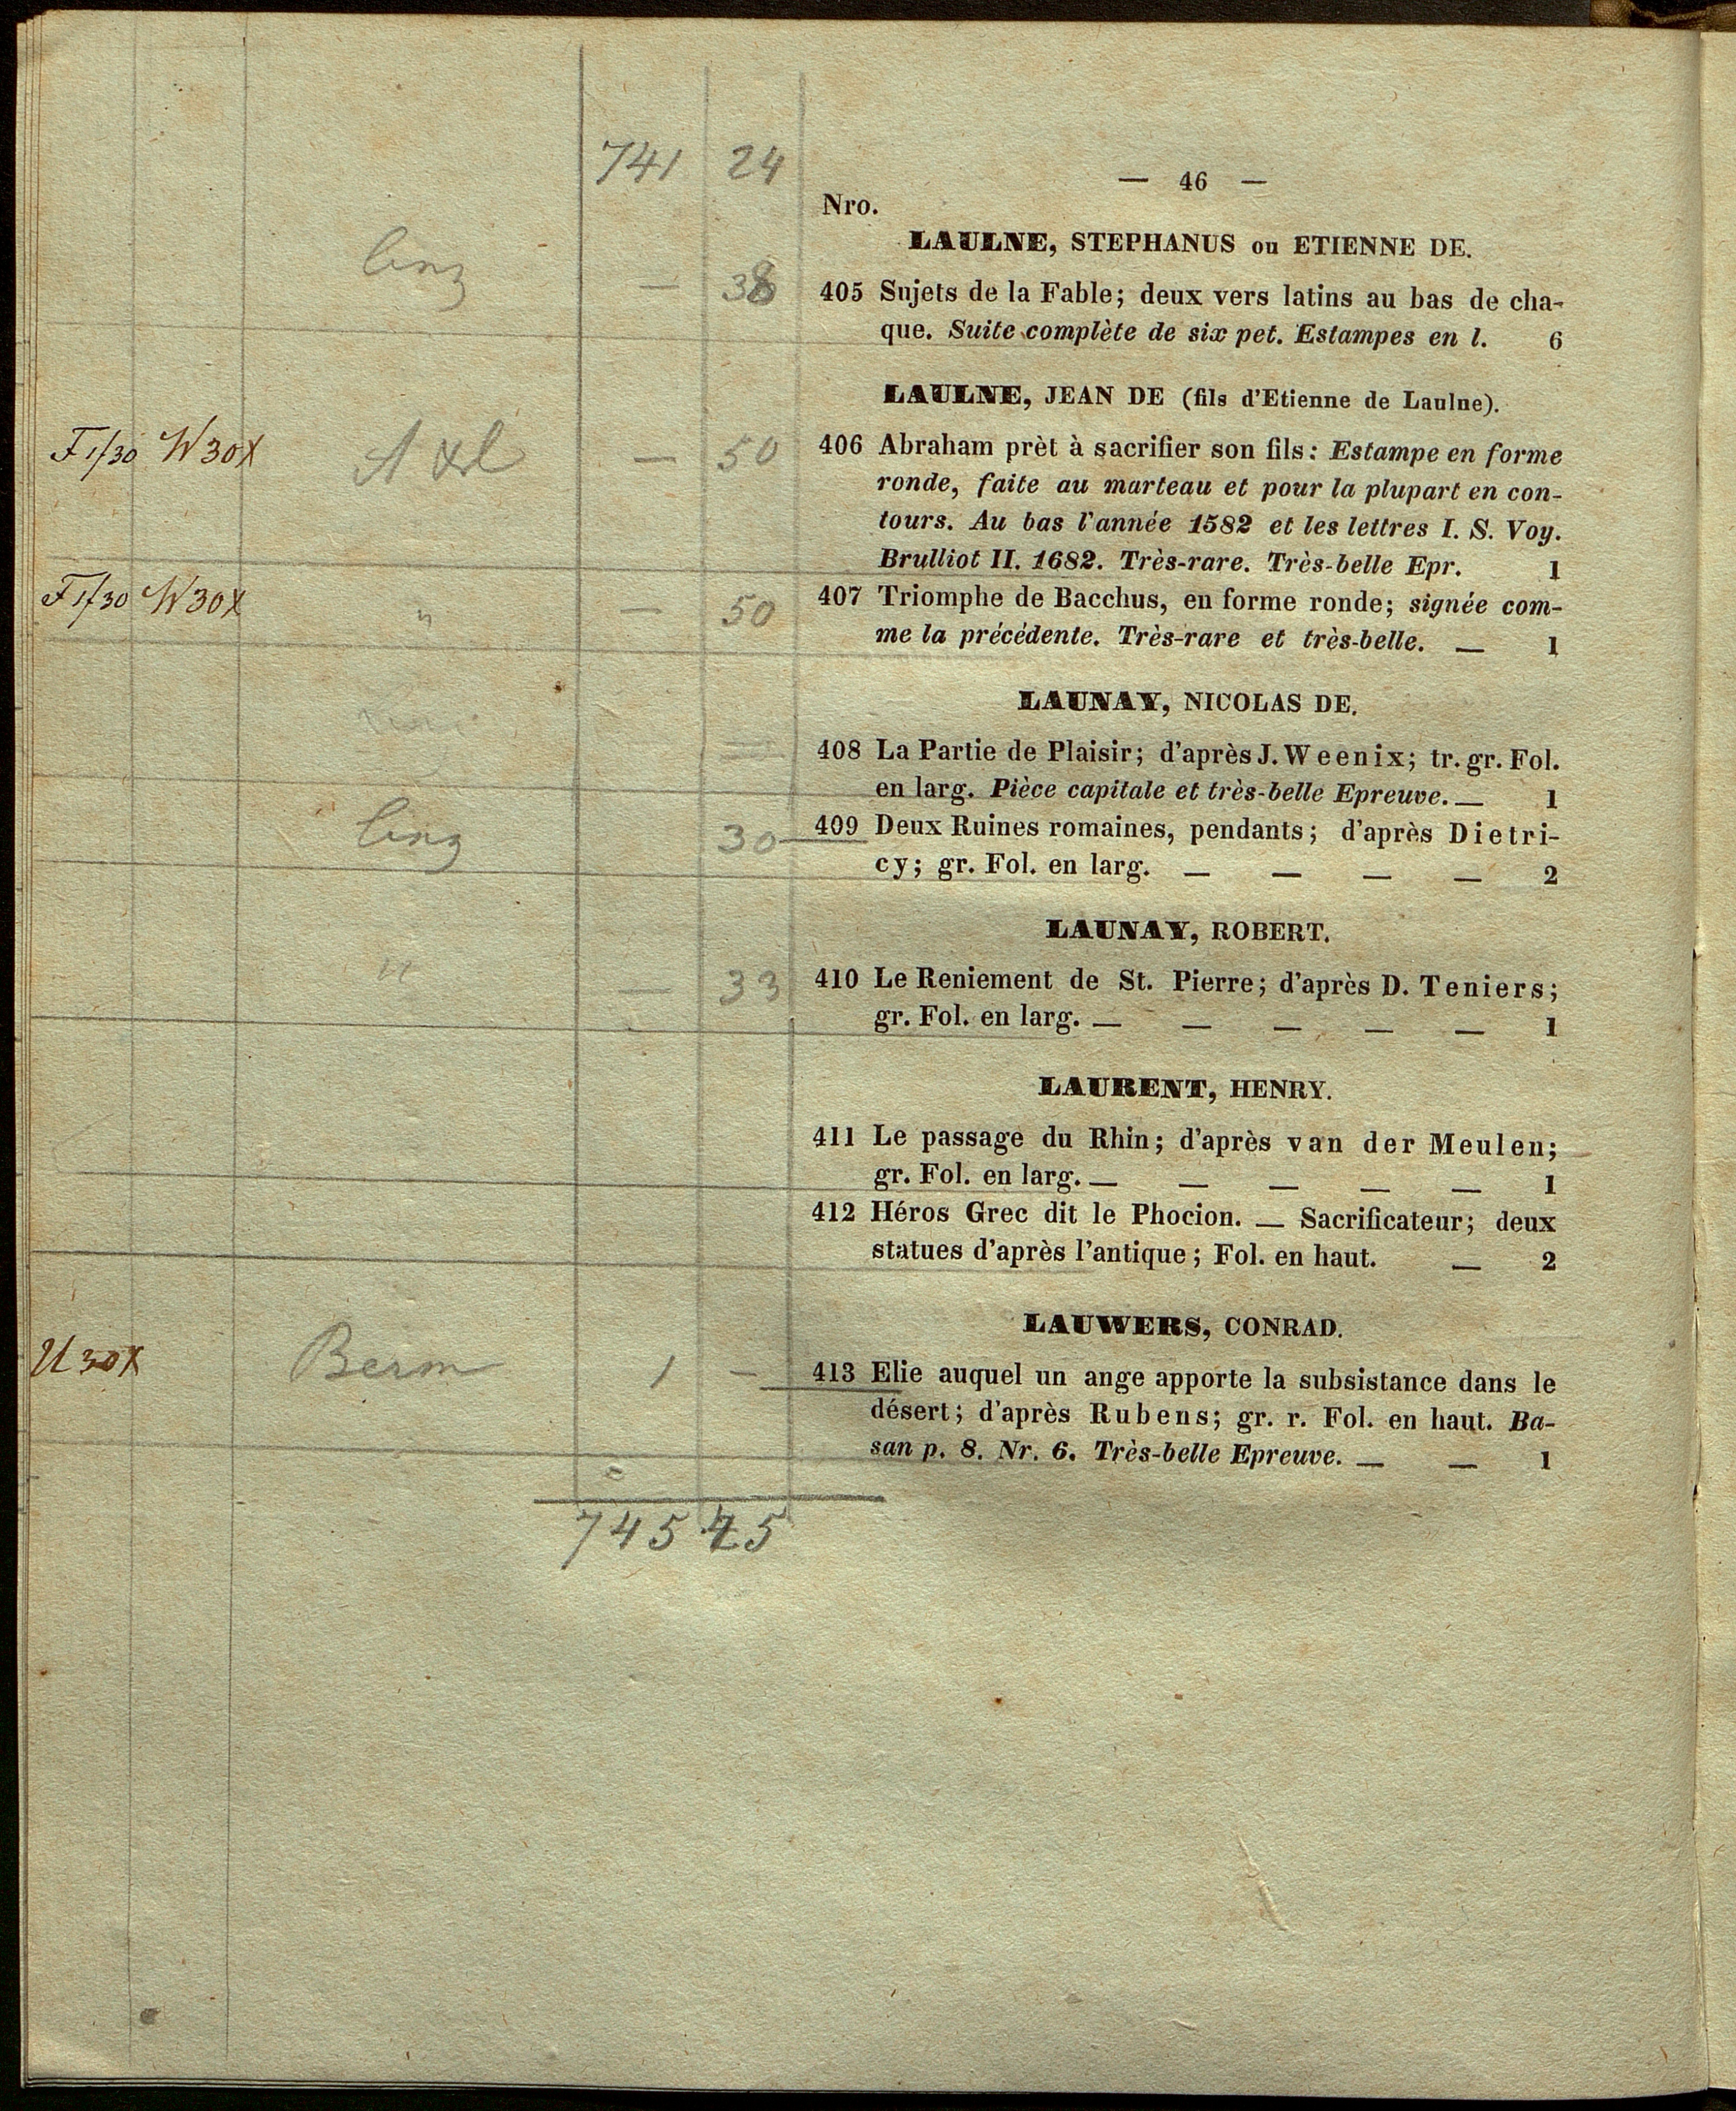 741 24
— 46 —
Nro.
LAULNE, STEPHANUS ou ETIENNE DE.
— 38 405 Sujets de la Fable; deux vers latins au bas de cha-
que. Suite complète de six pet. Estampes en l. 6
LAULNE, JEAN DE (fils d'Etienne de Laulne).
F1/30 W30X — 50 406 Abraham prèt à sacrifier son fils: Estampe en forme
ronde, faite au marteau et pour la plupart en con-
tours. Au bas l'année 1582 et les lettres I. S. Voy.
Brulliot II. 1682. Très-rare. Très-belle Epr. 1
F1/30 W30X " — 50 407 Triomphe de Bacchus, en forme ronde; signée com-
me la précédente. Très-rare et très-belle. — 1
LAUNAY, NICOLAS DE.
408 La Partie de Plaisir; d'après J. Weenix; tr. gr. Fol.
en larg. Pièce capitale et très-belle Epreuve. — 1
30 409 Deux Ruines romaines, pendants; d'après Dietri-
cy; gr. Fol. en larg. — — — — 2
LAUNAY, ROBERT.
" — 33 410 Le Reniement de St. Pierre; d'après D. Teniers;
gr. Fol. en larg. — — — — — 1
LAURENT, HENRY.
411 Le passage du Rhin; d'après van der Meulen;
gr. Fol. en larg. — — — — — 1
412 Héros Grec dit le Phocion. — Sacrificateur; deux
statues d'après l'antique; Fol. en haut. — 2
LAUWERS, CONRAD.
U30X Berm 1 — 413 Elie auquel un ange apporte la subsistance dans le
désert; d'après Rubens; gr. r. Fol. en haut. Ba-
san p. 8. Nr. 6. Très-belle Epreuve. — — 1
745